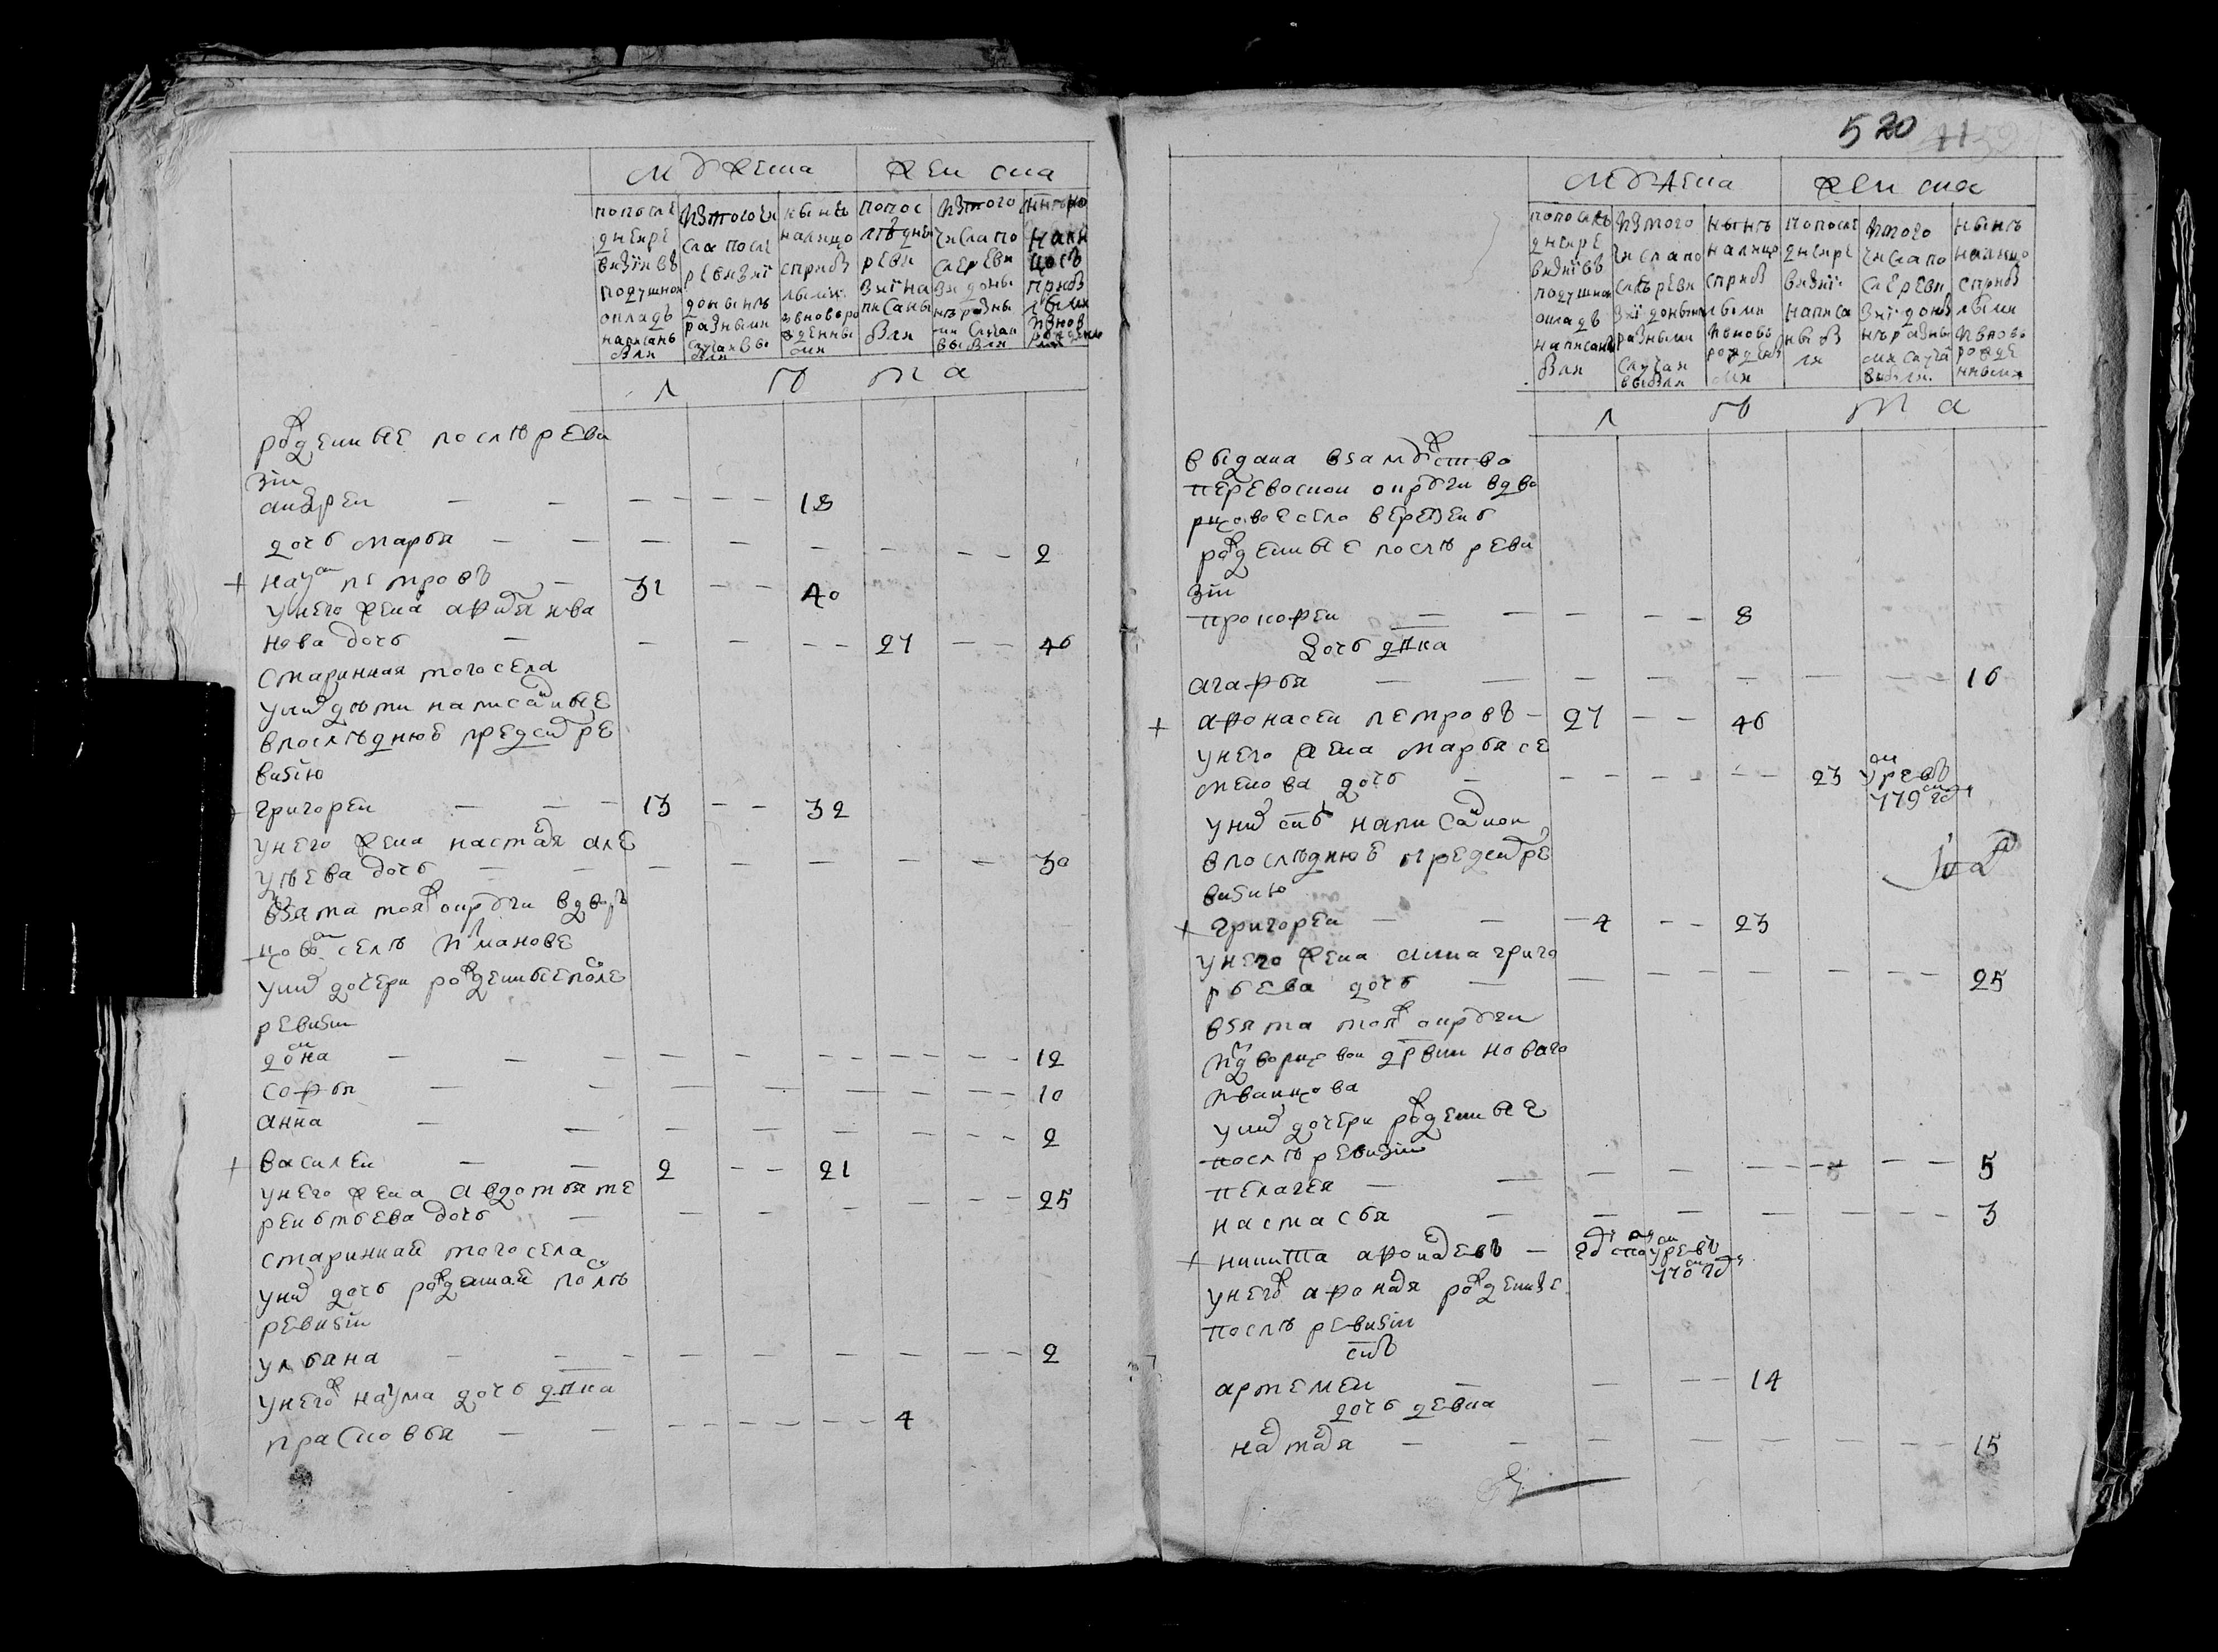 мужеска
женска
попосле
днеире
визïивъ
подушнои
окладъ
написаны
были
изтогочи
сла после
ревизиï
донынѣ
разными
случаи вы
были
нынѣ
налицо
сприбы
лыми
вновьро
жденны
ми
попос
лѣднеи
реви
зïина
писаны
были
изтого
числапо
слѣреви
зи доны
нѣразны
ми случаи
выбыли
ныне
нали
цосъ
прибы
лыми
ивнов
рожденно
лѣта
рожденные послѣ реви
зiи
андреи — — — 18
дочь марѳа — — — 2
+ наумъ петровъ — 31 — 40
унего жена
нова дочь — — 27 — 46
старинная тогосела
унихъ дѣти написанные
впослѣднюю предсимъ ре
визiю
григореи — — 13 — 32
унего жена настасья але
уѣева дочь — — 30
взята тояжъ округи вдвор
цовомъ селѣ
унихъ дочери рожденные после
ревизiи
домна — — — 12
софья — — — 10
анна — — — 2
+ василеи — — 2 — 21
унего жена авдотья те
рентьева дочь — — 25
стариннаи тогосела
унихъ дочь рожденнаи послѣ
ревизiи
ульяна — — — 2
унегожъ наума дочь дѣвка
прасковья — — — 4
520
мужеска
женска
попослѣ
днеире
визïивъ
подушнои
окладъ
написаны
были
изтого
числапо
слѣреви
зïи донынѣ
разными
случаи
выбыли
нынѣ
налицо
сприбы
лыми
ивновь
рожденны
ми
попосле
днеире
визïи
написа
ны бы
ли
изтого
числапо
слереви
зïи доны
нѣразны
ми случаи
выбыли
нынѣ
налицо
сприбы
лыми
ивновь
рожде
нными
лѣта
выдана взамужство
округи вдво
рцовое село
рожденные послѣ реви
зiи
прокофеи — — — 8
дочь дѣвка
агафья — — — 16
+ афонасеи петровъ — 27 — 46
унего жена марѳа се
менова дочь — — 23 умре въ
779мъ годѣ
унихъ сынъ написаннои
впослѣднюю предсимъ ре
визию
+ григореи — — 4 — 23
унего жена анна григо
рьева дочь — — 25
взята тояжъ округи
издворцовои дрвни новаго
иванцова
унихъ дочери рожденные
послѣ ревизiи
пелагея — — — 5
настасья — — — 3
+ никита афонасьевъ — умре въ
770мъ годѣ
унегожъ афонасья рожденные
послѣ ревизiи
сынъ
артемеи — — — 14
дочь девка
настасья — — — 15